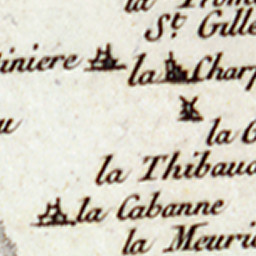 la
St. Gille
iniere
la Charp
u
la G
la Thibaud
la Cabanne
la Meuri